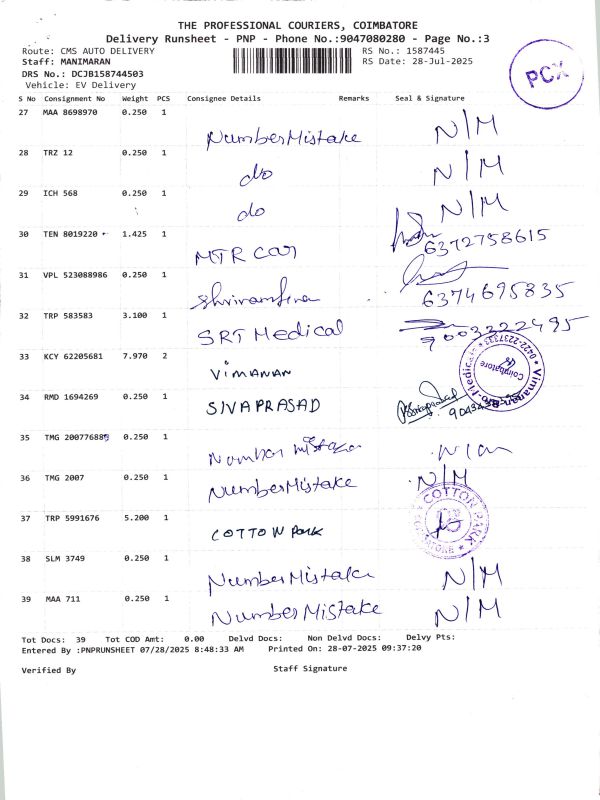 THE PROFESSIONAL COURIERS, COIMBATORE
Delivery Runsheet - PNP - Phone No.:9047080280 - Page No.:3
Route: CMS AUTO DELIVERY RS No.: 1587445
Staff: MANIMARAN RS Date: 28-Jul-2025
DRS No.: DCJB158744503
Vehicle: EV Delivery
PCX
S No Consignment No Weight PCS Consignee Details Remarks Seal & Signature
27 MAA 8698970 0.250 1
Number Mistake N/M
28 TRZ 12 0.250 1
do N/M
29 ICH 568 0.250 1
do N/M
30 TEN 8019220 1.425 1
MTR car 6372758615
31 VPL 523088986 0.250 1
6374695835
32 TRP 583583 3.100 1
SRT Medical
33 KCY 62205681 7.970 2
VIMANAN
Coimbatore
34 RMD 1694269 0.250 1
SIVAPRASAD
35 TMG 20077688 0.250 1
Number mistake
36 TMG 2007 0.250 1
Number Mistake N/M
37 TRP 5991676 5.200 1
COTTON PARK
COTTON PARK
38 SLM 3749 0.250 1
Number Mistake N/M
39 MAA 711 0.250 1
Number Mistake N/M
Tot Docs: 39 Tot COD Amt: 0.00 Delvd Docs: Non Delvd Docs: Delvy Pts:
Entered By :PNPRUNSHEET 07/28/2025 8:48:33 AM Printed On: 28-07-2025 09:37:20
Verified By Staff Signature